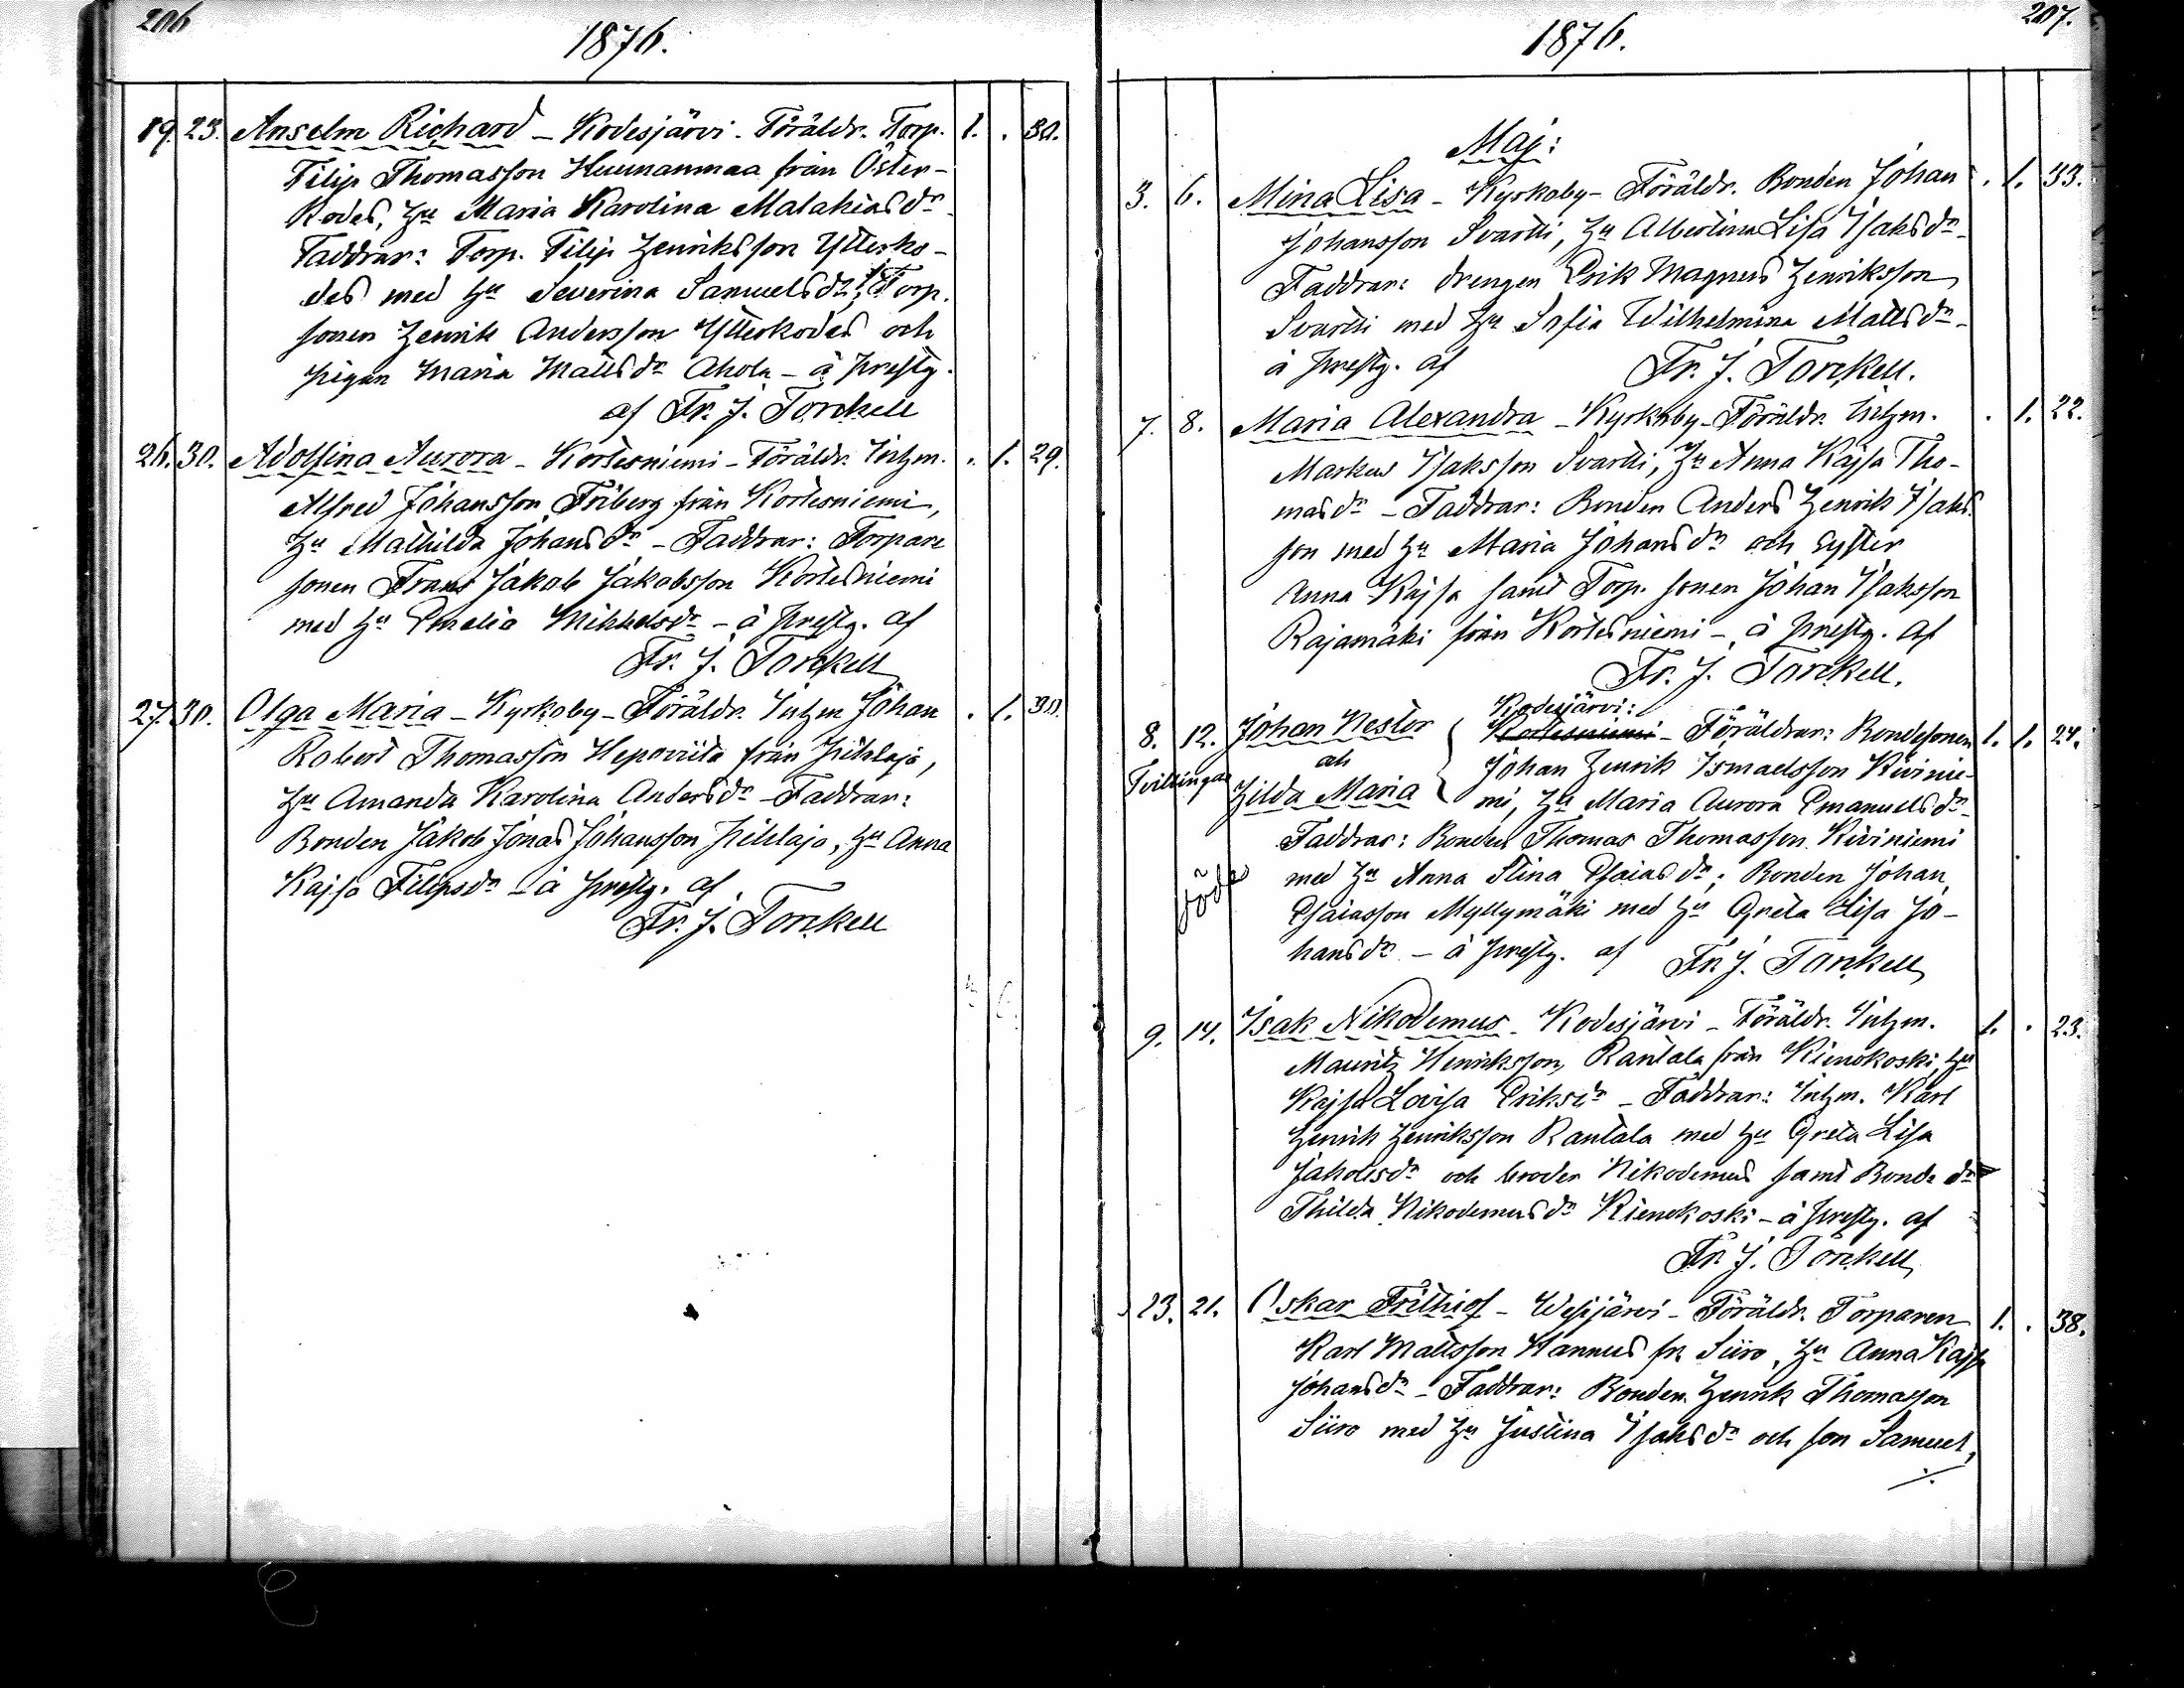 206
1876.
19. 23. Anselm Richard - Kodesjärvi - Föräldr. Torp. 1. . 30.
Filip Thomasson Huumanmaa från Öster-
Kodes, Hu Maria Karolina Malakiasdr -
Faddrar: Torp. Filip Henriksson Ytterko-
des med Hu Severina Samuelsdr, Torp.
sonen Henrik Andersson Ytterkodes och
pigan Maria Mattsdr Ahola - å prestg.
af Fr. J. Torckell
26. 30. Adolfina Aurora - Kortesniemi - Föräldr. Inhm. . 1. 29.
Alfred Johansson Friberg från Kortesniemi,
Hu Mathilda Johansdr - Faddrar: Torpare
sonen Frans Jakob Jakobsson Kortesniemi
med Hu Emelia Mikkelsdr - å prestg. af
Fr. J. Torckell
27. 30. Olga Maria - Kyrkoby - Föräldr. Inhm Johan . 1. 30.
Robert Thomasson Hepoviita från Pihlaja,
Hu Amanda Karolina Andersdr - Faddrar:
Bonden Jakob Jonas Johansson Pihlaja, Hu Anna
Kajsa Filipsdr - å prestg. af
Fr. J. Torckell
207.
1876.
Maj:
3. 6. Mina Lisa - Kyrkoby - Föräldr. Bonden Johan . 1. 33.
Johansson Svartti, Hu Albertina Lisa Isaksdr -
Faddrar: drengen Erik Magnus Henriksson
Svartti med Hu Sofia Wilhelmina Mattsdr -
å prestg. af Fr. J. Torckell.
7. 8. Maria Alexandra - Kyrkoby - Föräldr. Inhm. . 1. 22.
Markus Isaksson Svartti, Hu Anna Kajsa Tho-
masdr - Faddrar: Bonden Anders Henrik Isaks
son med Hu Maria Johansdr och Syster
Anna Kajsa samt Torp. sonen Johan Isaksson
Rajamäki från Kortesniemi - å prestg. af
Fr. J. Torckell.
Kodesjärvi:
8. 12. Johan Nestor Kortesniemi - Föräldrar: Bondesonen 1. 1. 24.
och Johan Henrik Ismaelsson Kivinie-
Tvillingar Hilda Maria mi, Hu Maria Aurora Emanuelsdr -
Faddrar: Bonden Thomas Thomasson Kiviniemi
med Hu Anna Stina Esaiasdr; Bonden Johan
Esaiasson Myllymäki med Hu Greta Lisa Jo-
hansdr - å prestg. af Fr. J. Torckell
9. 14. Isak Nikodemus - Kodesjärvi - Föräldr. Inhm. 1. . 23.
Mauritz Henriksson Rantala från Kienokoski, Hu
Kajsa Lovisa Eriksdr - Faddrar: Inhm. Karl
Henrik Henriksson Rantala med Hu Greta Lisa
Jakobsdr och broder Nikodemus samt Bonde dr
Thilda Nikodemusdr Kienokoski - å prestg. af
Fr. J. Torckell
13. 21. Oskar Frithiof - Wesijärvi - Föräldr. Torparen 1. . 38.
Karl Mattsson Hannus fr. Siiro, Hu Anna Kajsa
Johansdr - Faddrar: Bonden Henrik Thomasson
Siiro med Hu Justina Isaksdr och son Samuel,